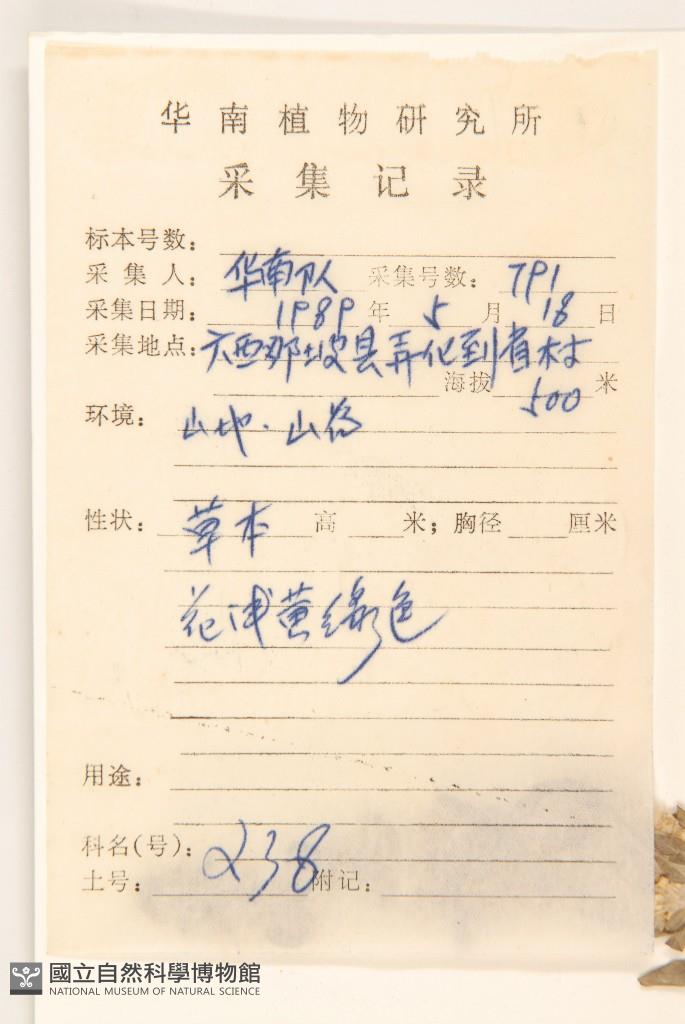 华南植物研究所
采集记录
标本号数:
采集人: 华南队 采集号数: 791
采集日期: 1989年 5月 18日
采集地点: 广西那坡县弄化到省村
海拔 500 米
环境: 山地·山谷
性状: 草本 高 米; 胸径 厘米
花浅黄绿色
用途:
科名(号): 238
土号: 附记:
國立自然科學博物館
NATIONAL MUSEUM OF NATURAL SCIENCE